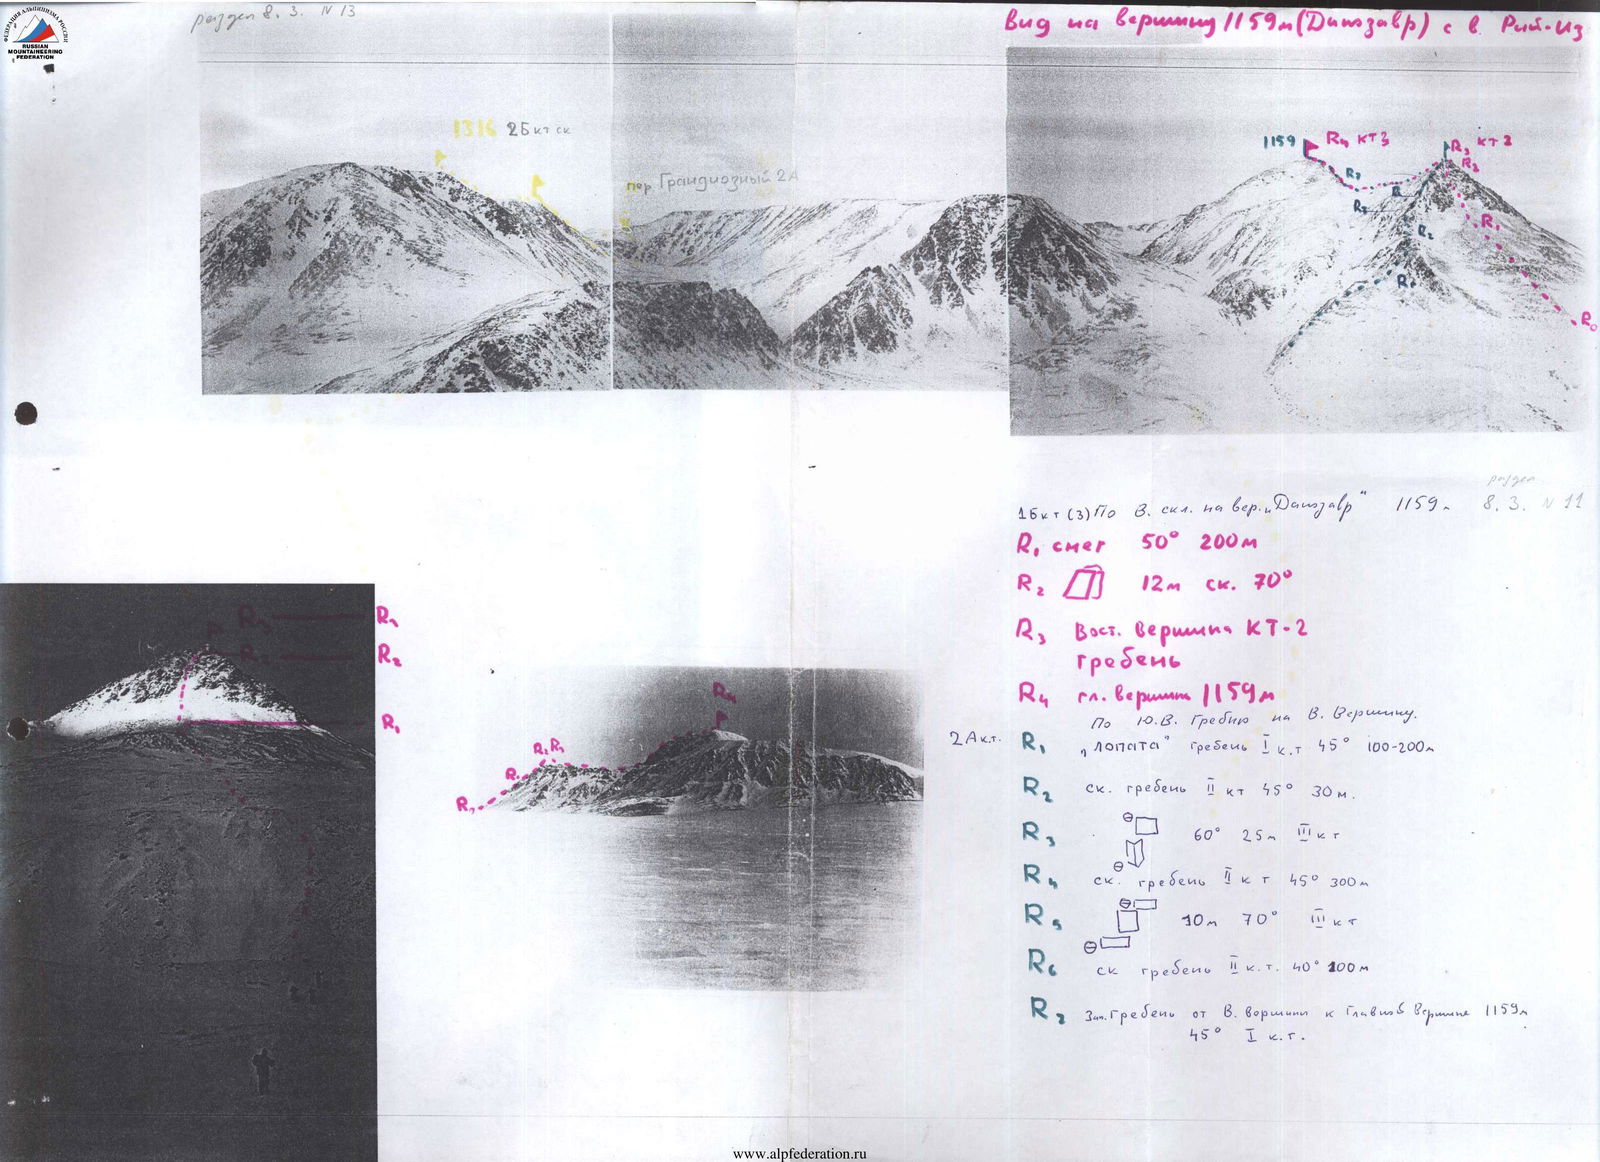 ФЕДЕРАЦИЯ АЛЬПИНИЗМА РОССИИ
RUSSIAN
MOUNTAINEERING
FEDERATION
раздел 8. 3. N 13
Вид на вершину 1159м (Динозавр) с в. Рай-Из
1316 2Б кт ск
пер Грандиозный 2А
1159 R4 КТ3
R3 КТ2
R2
R7
R7
R2
R1
R1
R0
раздел
1Б кт (3) По В. скл. на вер. "Динозавр" 1159м 8. 3. N 11
R1 снег 50° 200м
R2 12м ск. 70°
R3 Вост. вершина КТ-2
гребень
R4 гл. вершина 1159м
По Ю.В. Гребню на В. Вершину.
2А к.т. R1 "Лопата" гребень I к.т 45° 100-200м
R2 ск. гребень II кт 45° 30 м.
R3 60° 25м III кт
R4 ск. гребень II к т 45° 300м
R5 10м 70° III кт
R6 ск гребень II к.т. 40° 100м
R7 Зап. Гребень от В. вершины к Главной Вершине 1159м
45° I к.т.
R3
R2
R2
R1
R4
R2 R3
R1
www.alpfederation.ru